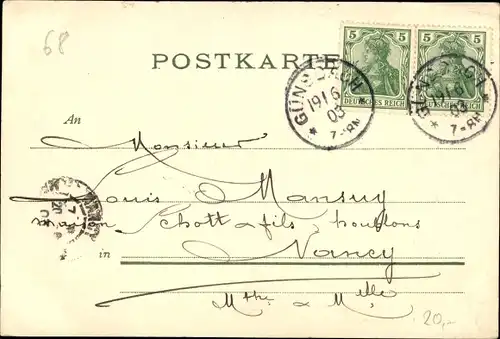 68
POSTKARTE
5 5
DEUTSCHES REICH DEUTSCHES REICH
GÜNSBACH
19 6
03
7-8N
GÜNSBACH
19 6
03
7-8N
An
Monsieur
Louis Mansuy
maison Schott & fils, houblons
in Nancy
Mthe & Mlle
20,-